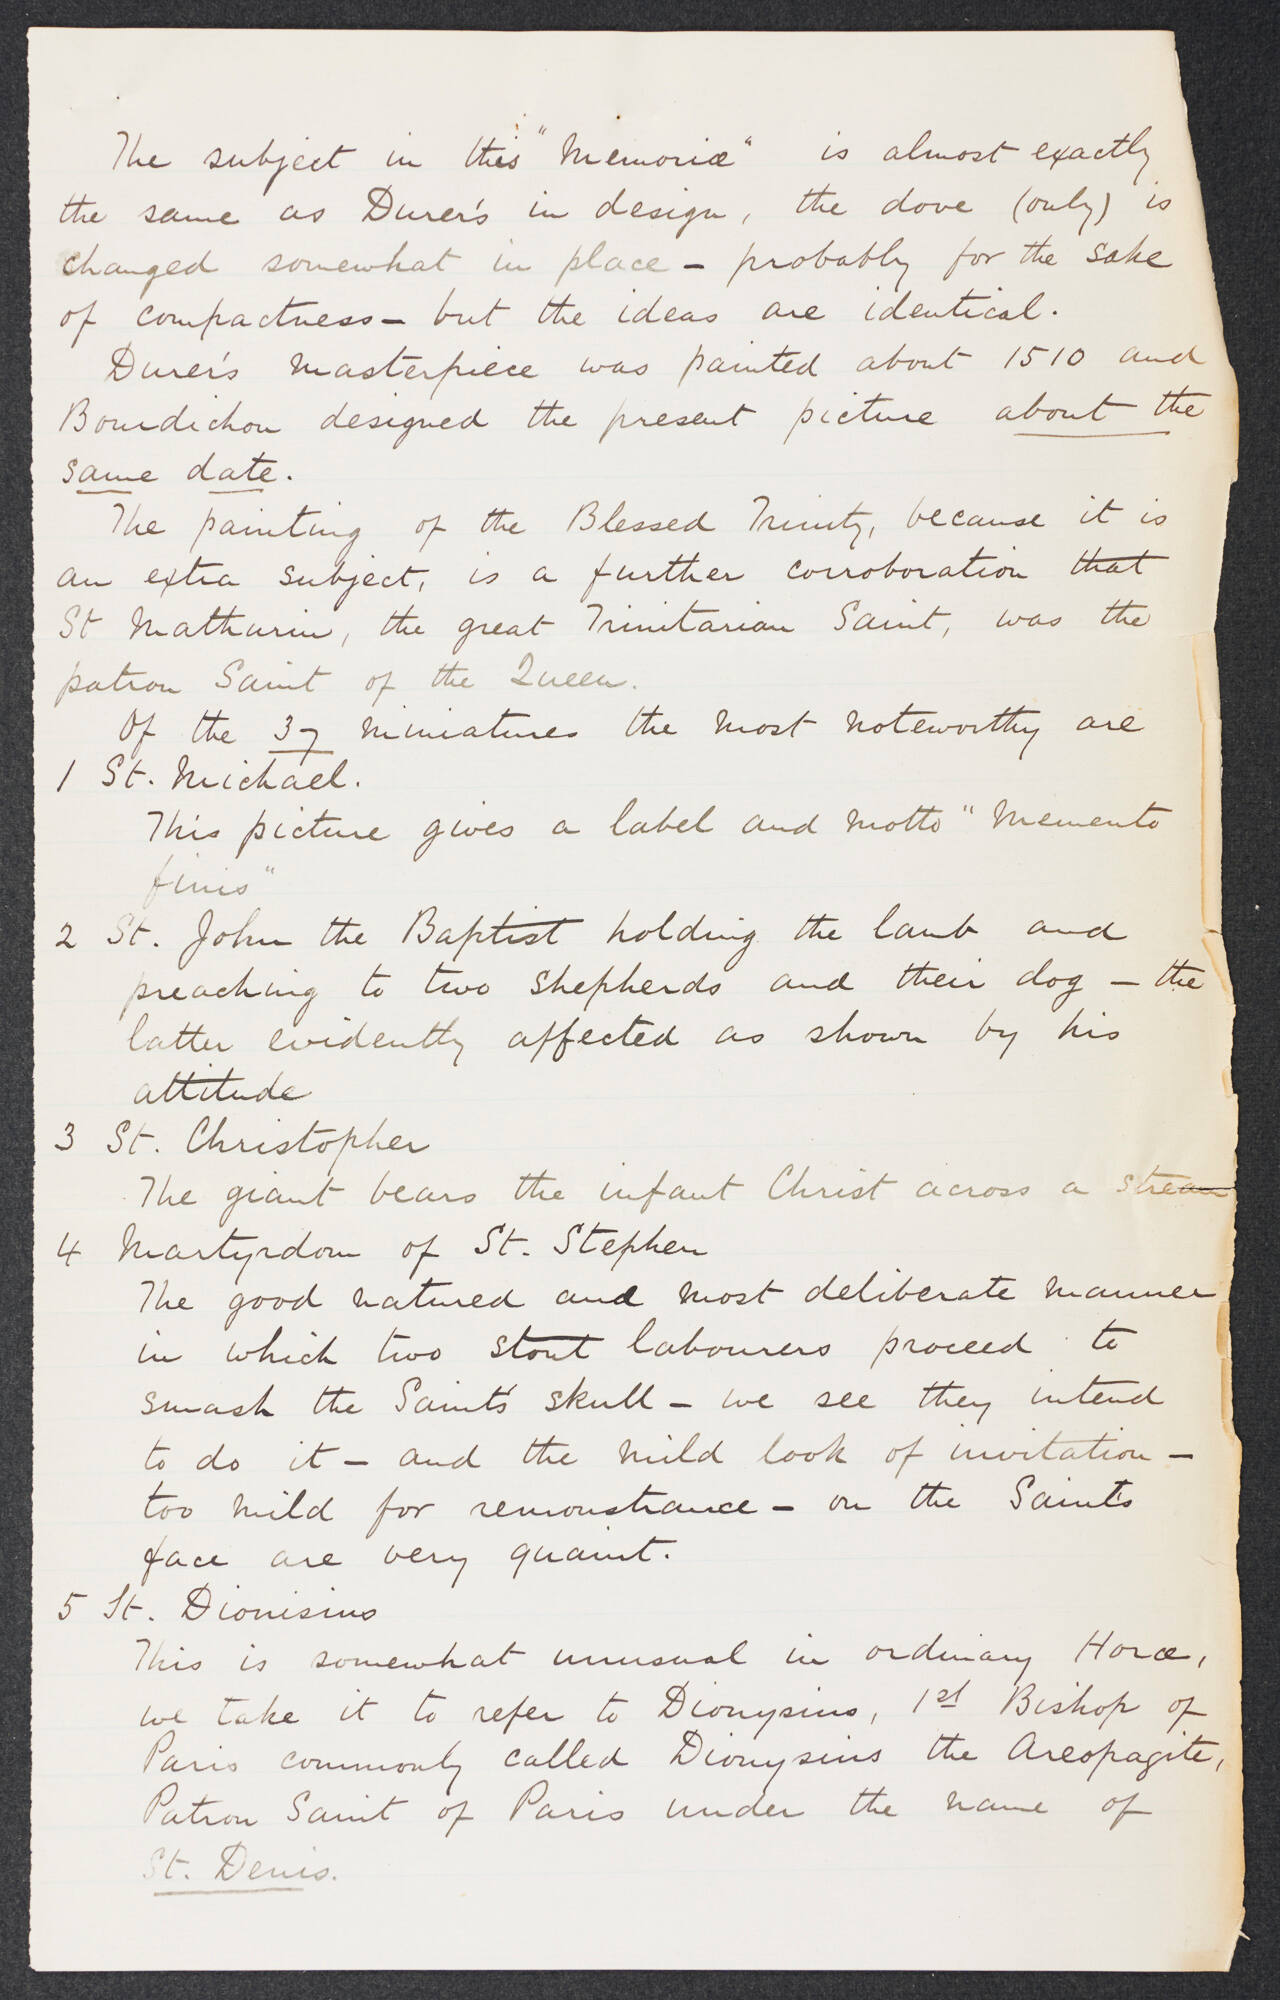 The subject in this "Memoriæ" is almost exactly
the same as Durer's in design, the dove (only) is
changed somewhat in place – probably for the sake
of compactness – but the ideas are identical.
Durer's masterpiece was painted about 1510 and
Bourdichon designed the present picture about the
same date.
The painting of the Blessed Trinity, because it is
an extra subject, is a further corroboration that
St Mathurin, the great Trinitarian Saint, was the
patron Saint of the Queen.
Of the 37 miniatures the most noteworthy are
1 St. Michael.
This picture gives a label and motto "Memento
finis"
2 St. John the Baptist holding the lamb and
preaching to two shepherds and their dog – the
latter evidently affected as shown by his
attitude
3 St. Christopher
The giant bears the infant Christ across a stream
4 Martyrdom of St. Stephen
The good natured and most deliberate manner
in which two stout labourers proceed to
smash the Saint's skull – we see they intend
to do it – and the mild look of invitation –
too mild for remonstrance – on the Saint's
face are very quaint.
5 St. Dionisius
This is somewhat unusual in ordinary Horæ,
we take it to refer to Dionysius, 1st Bishop of
Paris commonly called Dionysius the Areopagite,
Patron Saint of Paris under the name of
St. Denis.